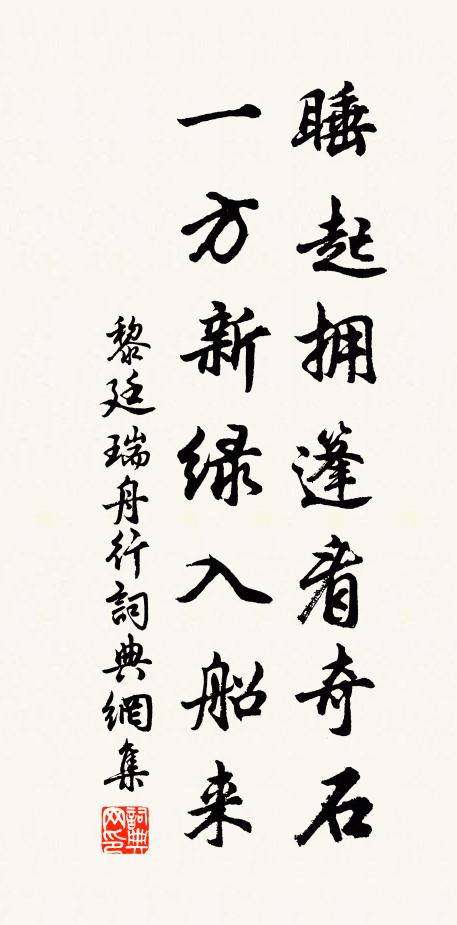 睡起拥篷看奇石
一方新绿入船来
黎廷瑞舟行詞典網集
詞典
网印